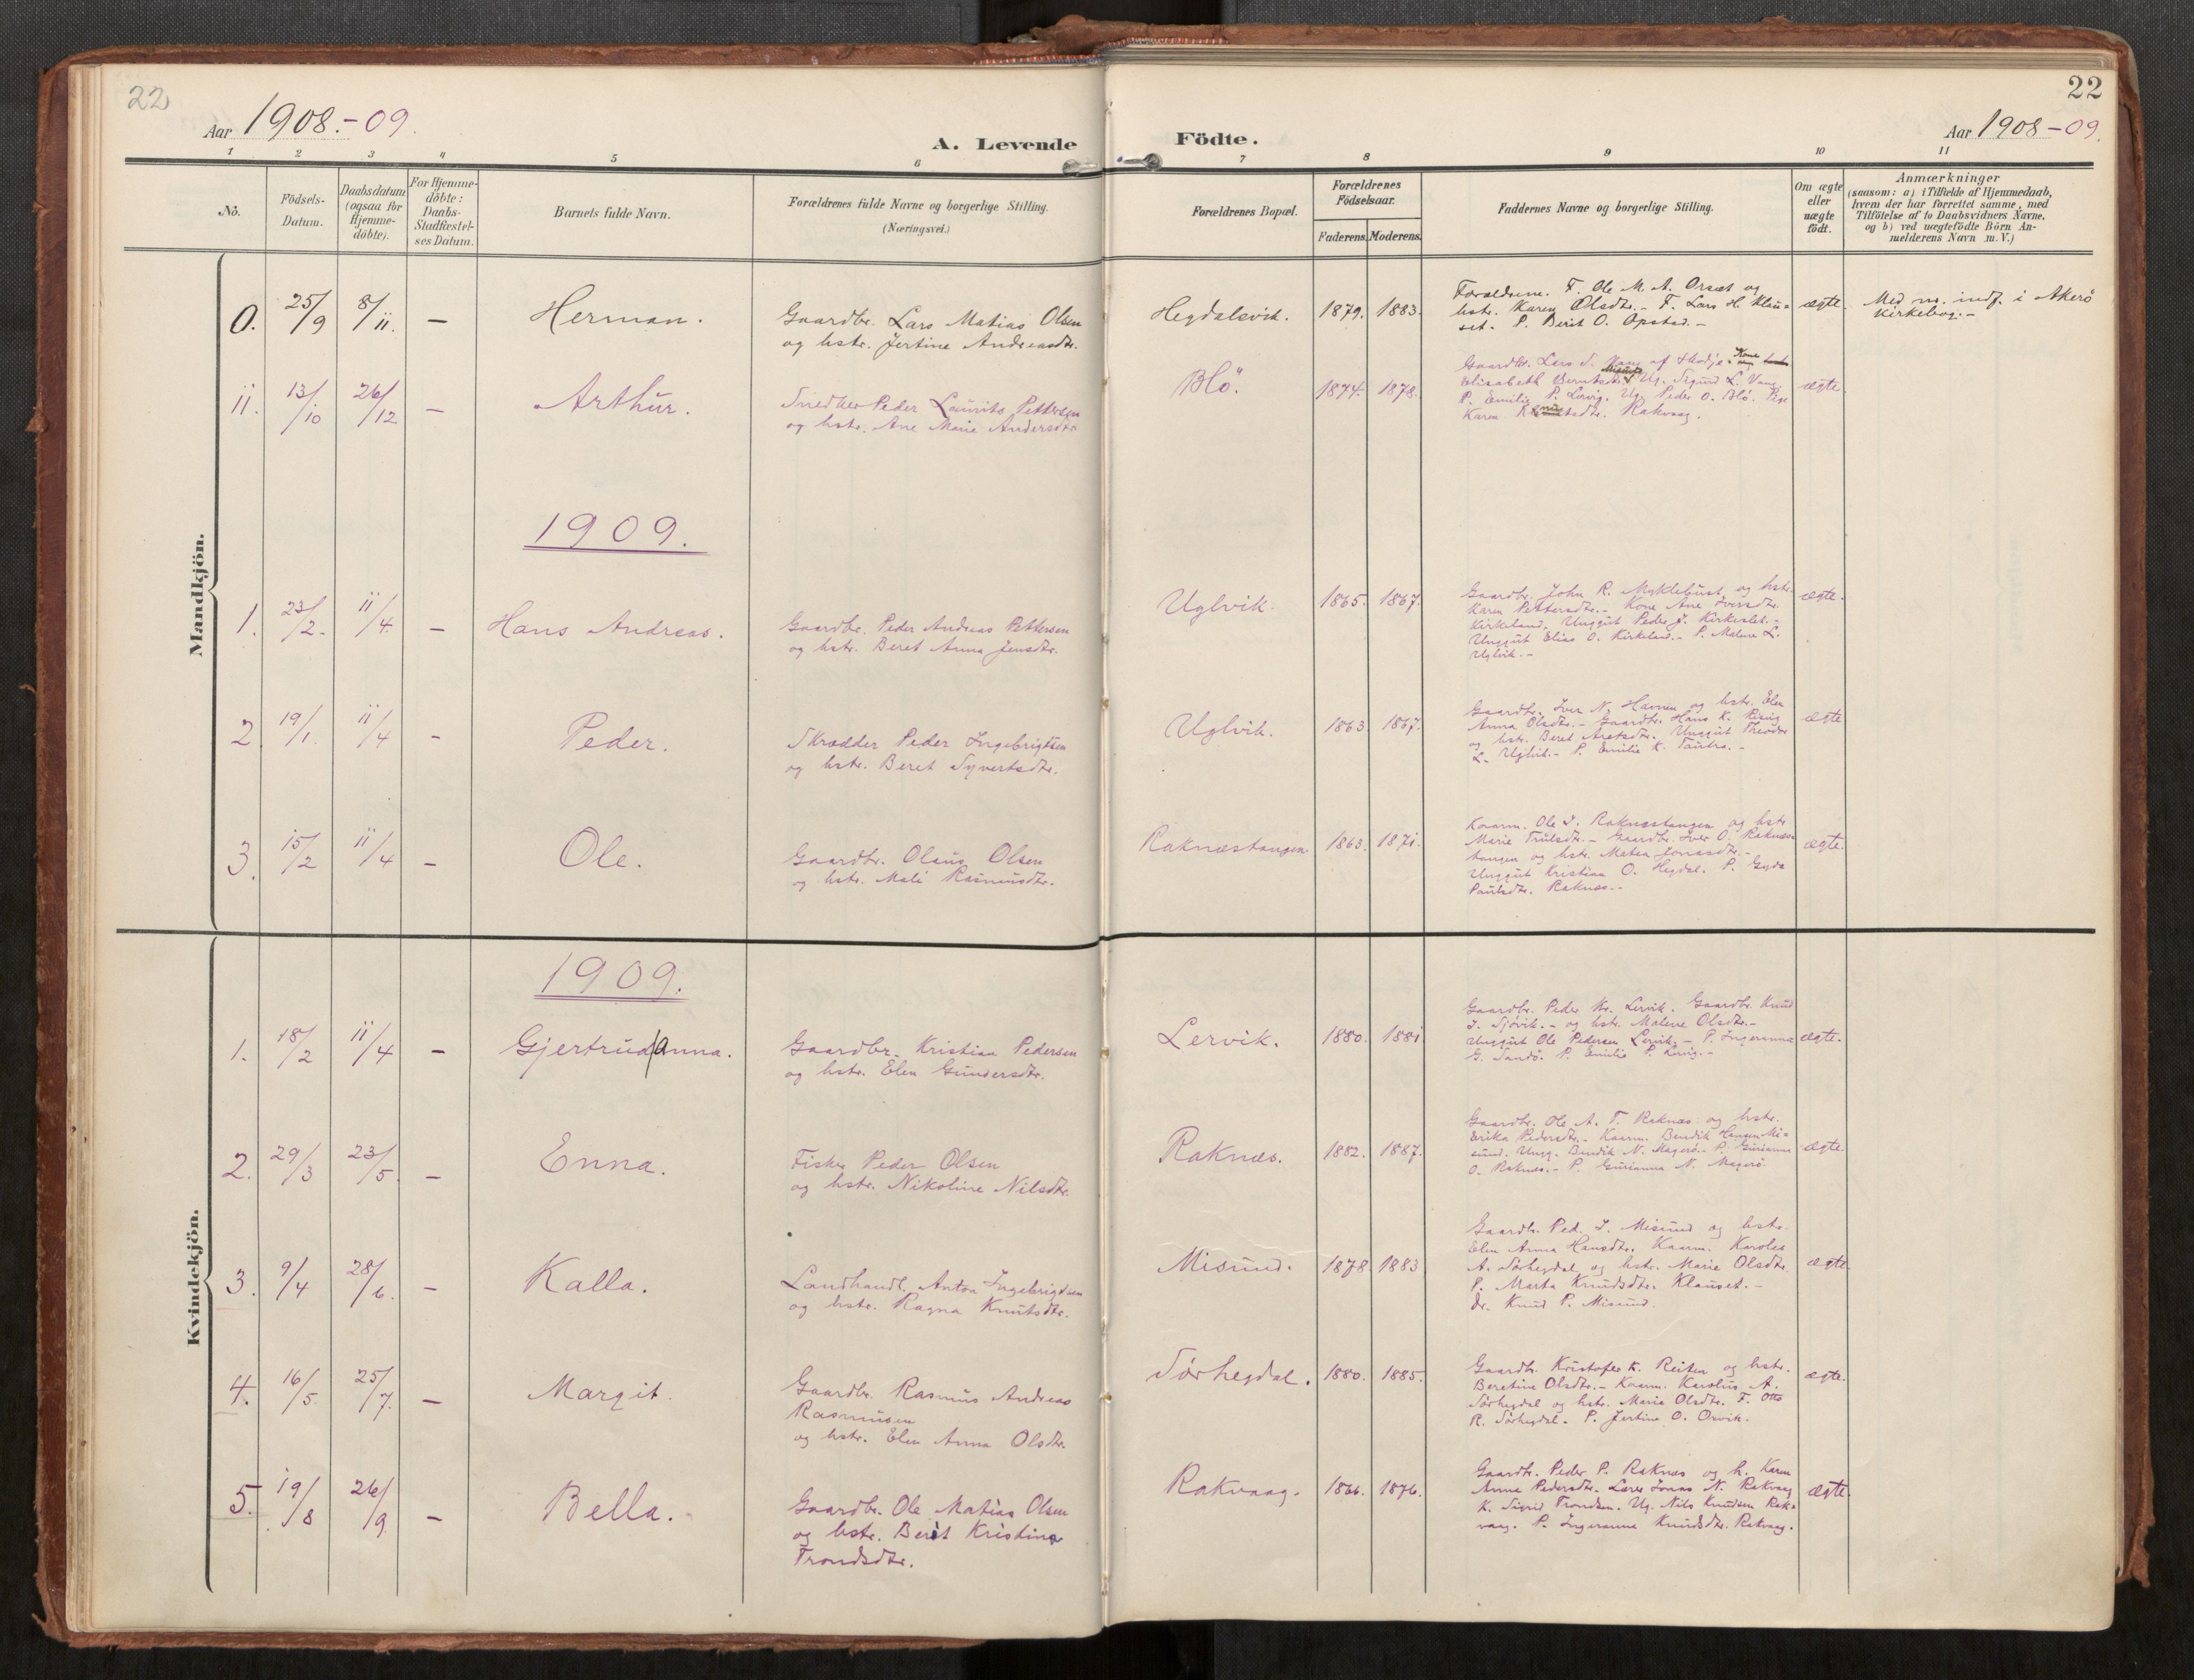 22
Aar 1908.-09.
A. Levende
1 2 3 4 5 6
Nô.
Födsels-
Datum.
Daabsdatum
(ogsaa for
Hjemme-
döbte).
For Hjemme-
döbte:
Daabs-
Stadfæstel-
ses Datum.
Barnets fulde Navn.
Forældrenes fulde Navne og borgerlige Stilling.
(Næringsvei.)
Mandkjön.
0. 25/9 8/11. — Herman.
Gaardbr. Lars Matias Olsen
og hstr. Jertine Andreasdtr.
11. 13/10 26/12 — Arthur.
Snedker Peder Laurits Pettersen
og hstr. Ane Marie Andersdtr.
1909.
1. 23/2. 11/4. — Hans Andreas.
Gaardbr. Peder Andreas Pettersen
og hstr. Beret Anna Jensdtr.
2. 19/1. 11/4 - Peder.
Skrædder Peder Ingebrigtsen
og hstr. Beret Syvertsdtr.
3. 15/2 11/4 - Ole.
Gaardbr. Olaus Olsen
og hstr. Mali Rasmusdtr.
Kvindekjön.
1909.
1. 18/2 11/4 - Gjertrud/anna.
Gaardbr. Kristian Pedersen
og hstr. Elen Gundersdtr.
2. 29/3 23/5. - Enna.
Fisker Peder Olsen
og hstr. Nikoline Nilsdtr.
3. 9/4 28/6. - Kalla.
Landhandl. Anton Ingebrigtsen
og hstr. Ragna Knutsdtr.
4. 16/5. 25/7. — Margit.
Gaardbr. Rasmus Andreas
Rasmusen
og hstr. Elen Anna Olsdtr.
5. 19/8 26/9. - Bella.
Gaardbr. Ole Matias Olsen
og hstr. Berit Kristina
Trondsdtr.
22
Aar 1908-09.
Födte.
7 8 9 10 11
Forældrenes Bopæl.
Forældrenes
Födselsaar.
Faderens. Moderens.
Faddernes Navne og borgerlige Stilling.
Om ægte
eller
uægte
födt.
Anmærkninger
(saasom: a) i Tilfælde af Hjemmedaab,
hvem der har forrettet samme, med
Tilföielse af to Daabsvidners Navne,
og b) ved uægtefödte Börn An-
melderens Navn m. V.)
Hegdalsvik. 1879. 1883.
Forældrene. F. Ole M. A. Orsæt og
hstr. Karen Olsdtr. - F. Lars H. Klau=
set. P. Berit O. Opstad. -
ægte.
Med no. indf. i Akerö
Kirkebog. -
Blö. 1874. 1878.
Gaardbr. Lars S. Vang af Skodje. Kone
Elisabeth Berntsdtr. Misund Ug. Sigurd L. Vang.
P. Emilie P. Lervig. Ug. Peder O. Blö. Pige
Karen Knutsdtr. Rakvaag.
ægte
Uglvik. 1865. 1867.
Gaardbr. John R. Myklebust og hstr.
Karen Pettersdtr. - Kone Ane Iversdtr.
Kirkeland. Unggut Peder J. Kirkeslet. -
Unggut Elias O. Kirkeland. - P. Malene L.
Uglvik. -
ægte.
Uglvik. 1863. 1867.
Gaardbr. Iver N. Havnen og hstr. Elen
Anna Olsdtr. - Gaardbr. Hans K. Risvig
og hstr. Beret Aretsdtr. Unggut Theodor
L. Uglvik. - P. Emilie K. Tautra. -
ægte
Raknæstangen 1863. 1871.
Kaarm. Ole I. Raknæstangen og hstr.
Marie Trulsdtr. - Gaardbr. Iver O. Raknæs
tangen og hstr. Meten Jonasdtr. -
Unggut Kristian O. Hegdal. P. Gyda
Paulsdtr. Raknæs. -
ægte.
Lervik. 1880. 1881
Gaardbr. Peder Kr. Lervik. Gaardbr. Knud
J. Sjövik. - og hstr. Malene Olsdtr. -
Unggut Ole Pedersen Lervik. - P. Ingeranna
G. Sandö. P. Emilie P. Lervig. -
ægte.
Raknæs. 1882. 1887.
Gaardbr. Ole A. T. Raknæs og hstr.
Erika Pedersdtr. - Kaarm. Bendik Hansen Mi=
sund. Ungg. Bendik N. Magerö. - P. Gurianna
O. Raknæs. - P. Gurianna N. Magerö
ægte.
Misund. 1878. 1883
Gaardbr. Ped. I. Misund og hstr.
Elen Anna Hansdtr. Kaarm. Karoles
A. Sörhegdal og hstr. Marie Olsdtr.
P. Marta Knudsdtr. Klauset. -
Knud P. Misund.
ægte.
Sörhegdal. 1880. 1885.
Gaardbr. Kristofer K. Reiten og hstr.
Beretine Olsdtr. - Kaarm. Karolus A.
Sörhegdal og hstr. Marie Olsdtr. F. Otto
R. Sörhegdal. P. Jertine O. Orvik.
ægte.
Rakvaag. 1866. 1876.
Gaardbr. Peder P. Raknæs og h. Karen
Anne Pedersdtr. Lærer Jonas N. Rakvaag
K. Sigrid Trondsen. Ug. Nils Knudsen Rak=
vaag. P. Ingeranna Knudsdtr. Rakvaag.
ægte.